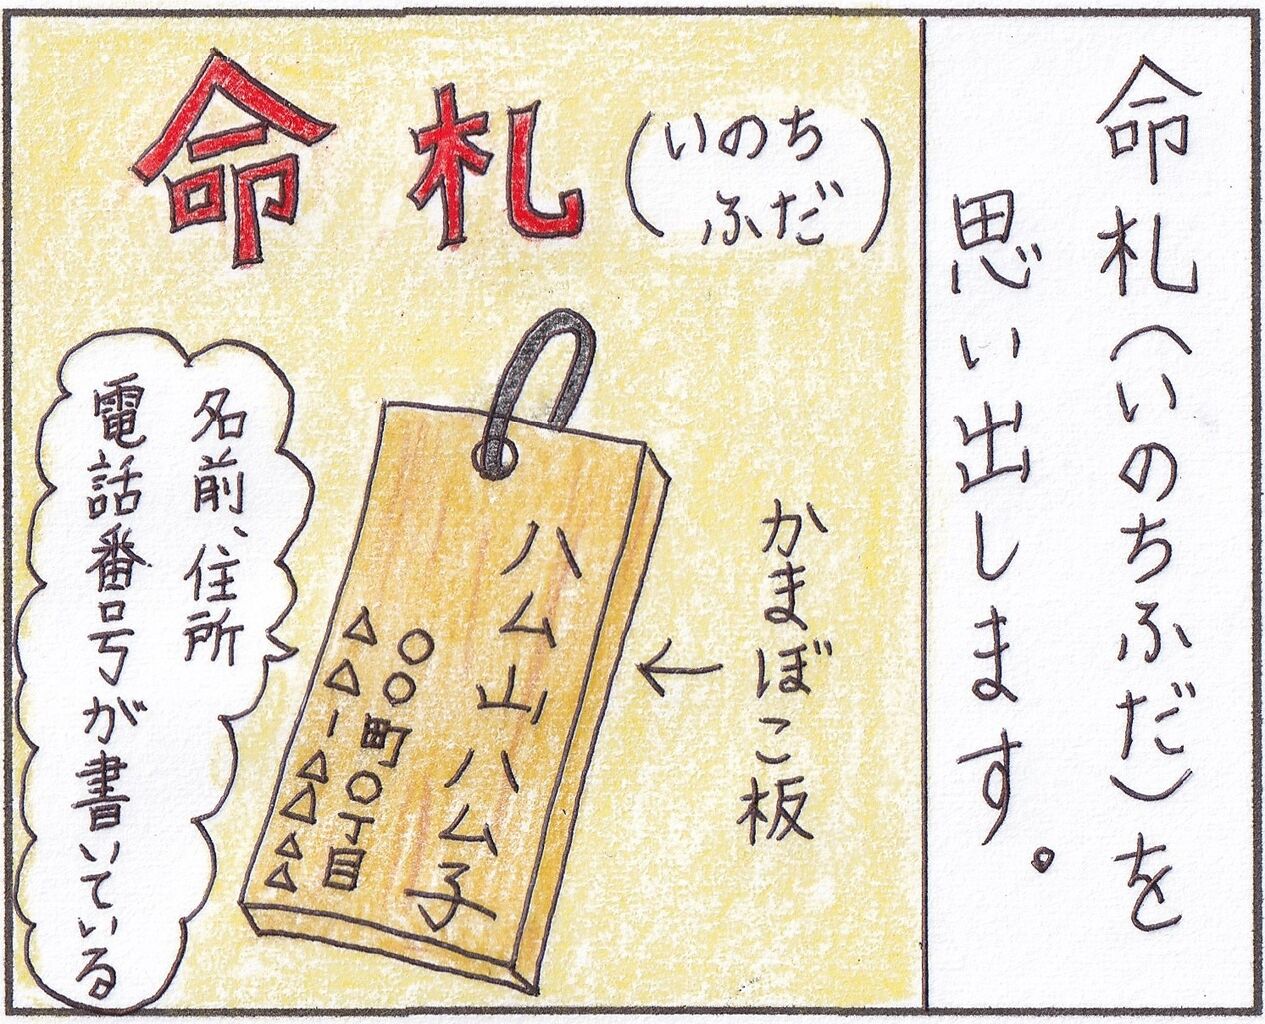 命札(いのちふだ)を
思い出します。
命札
(いのち
ふだ)
かまぼこ板
ハム山ハム子
○○町○丁目
△△ー△△△△
名前、住所
電話番号が書いている